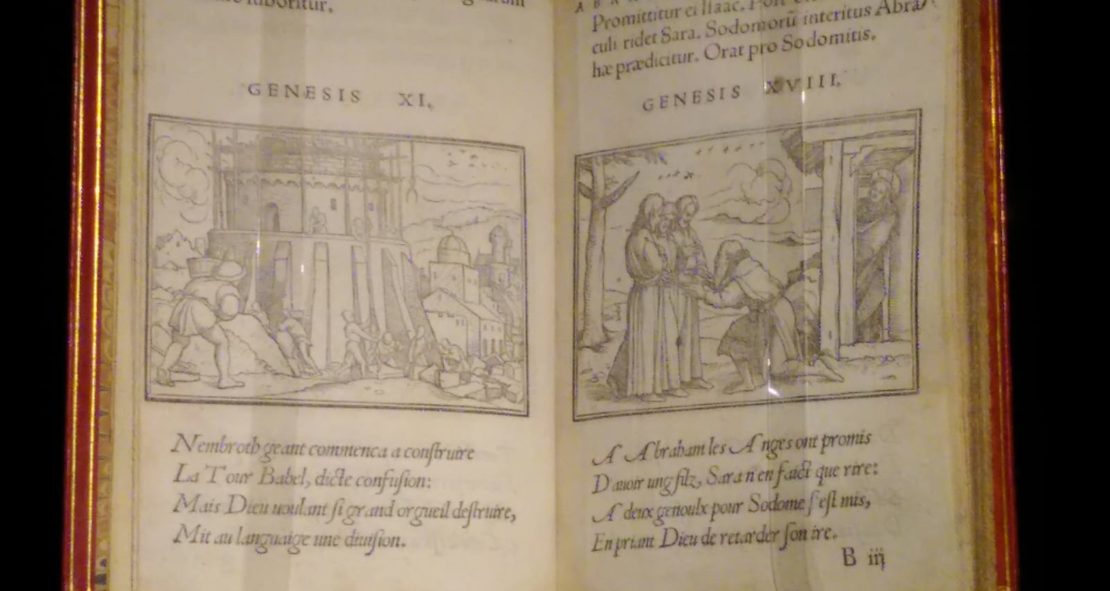 GENESIS XI.
Nembroth geant commenca a construire
La Tour Babel, dicte confusion:
Mais Dieu uoulant si grand orgueil destruire,
Mit au languaige une diuision.
Promittitur ei Isaac.
culi ridet Sara. Sodomorū interitus Abra
hæ prædicitur. Orat pro Sodomitis.
GENESIS XVIII.
A Abraham les Anges ont promis
D'auoir ung filz, Sara n'en faict que rire:
A deux genoulx pour Sodome s'est mis,
En priant Dieu de retarder son ire.
B iij